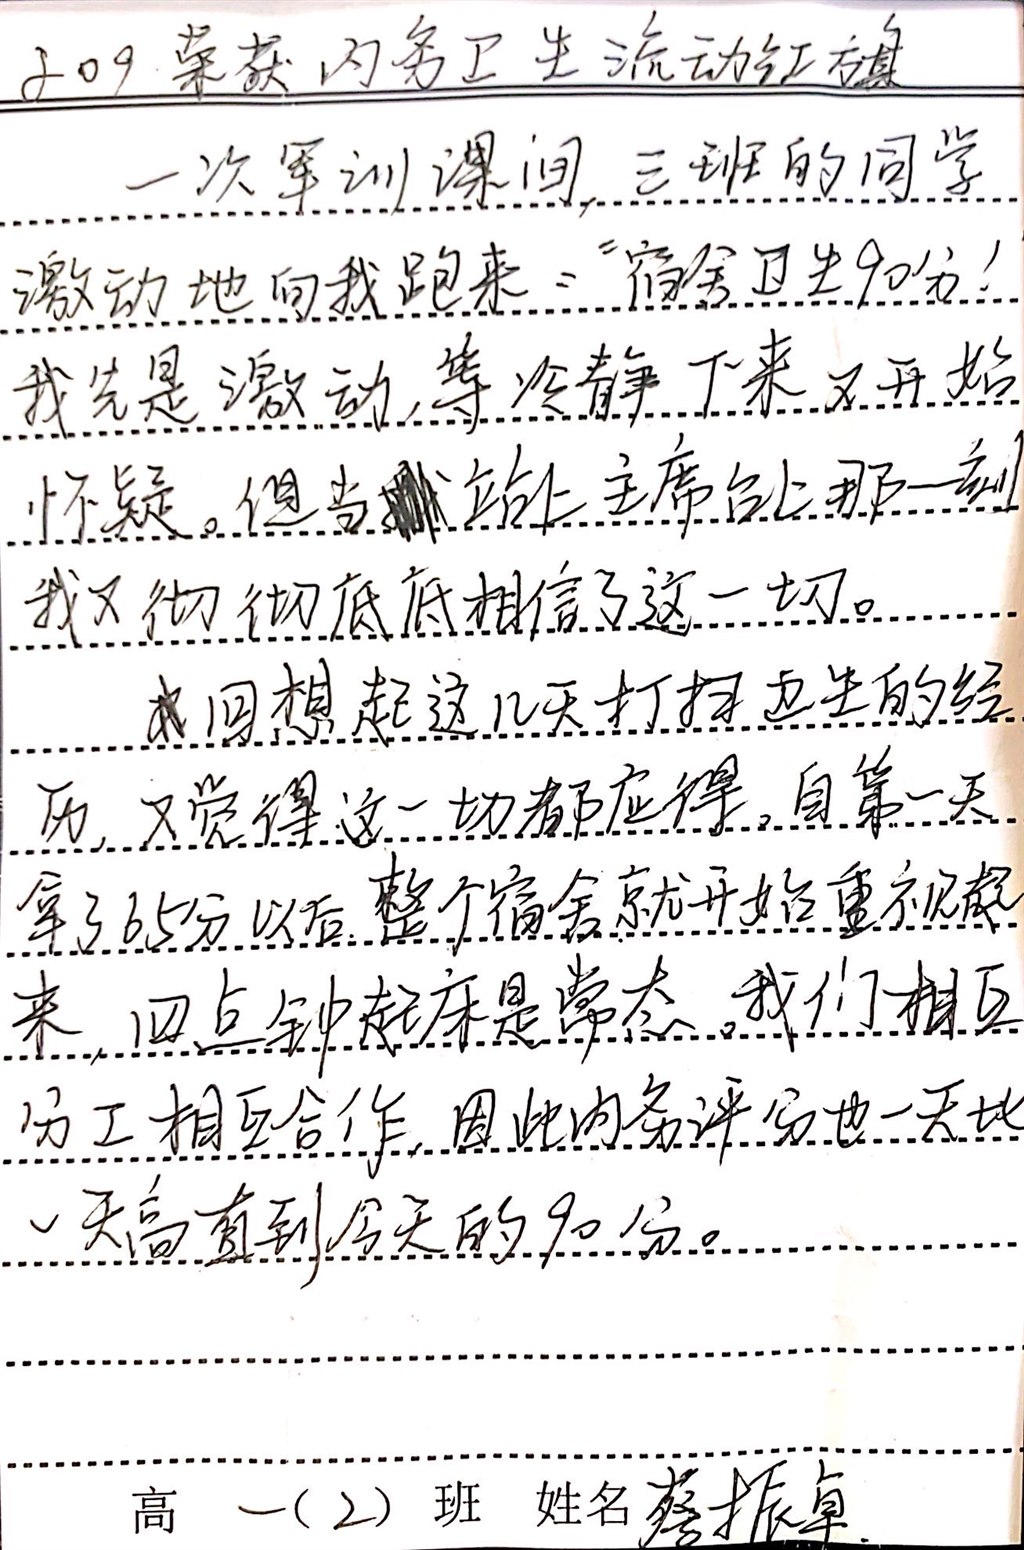 209荣获内务卫生流动红旗
一次军训课间,三班的同学
激动地向我跑来:"宿舍卫生90分!
我先是激动,等冷静下来又开始
怀疑。但当站上主席台上那一刻
我又彻彻底底相信了这一切。
回想起这几天打扫卫生的经
历,又觉得这一切都应得。自第一天
拿了65分以后.整个宿舍就开始重视起
来,四点钟起床是常态。我们相互
分工相互合作,因此内务评分也一天比
一天高直到今天的90分。
高一(2)班 姓名蔡振卓